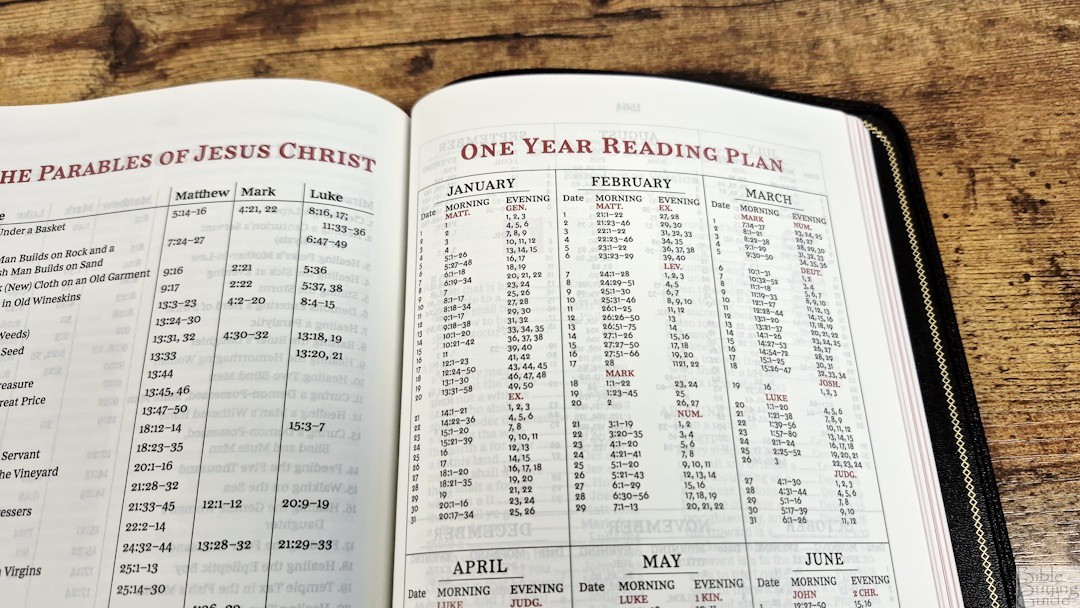 HE PARABLES OF JESUS CHRIST
e Matthew Mark Luke
Under a Basket 5:14–16 4:21, 22 8:16, 17;
11:33–36
Man Builds on Rock and a 7:24–27 6:47–49
sh Man Builds on Sand
(New) Cloth on an Old Garment 9:16 2:21 5:36
in Old Wineskins 9:17 2:22 5:37, 38
13:3–23 4:2–20 8:4–15
Weeds) 13:24–30
Seed 13:31, 32 4:30–32 13:18, 19
13:33 13:20, 21
reasure 13:44
reat Price 13:45, 46
13:47–50
18:12–14 15:3–7
Servant 18:23–35
he Vineyard 20:1–16
21:28–32
essers 21:33–45 12:1–12 20:9–19
22:2–14
24:32–44 13:28–32 21:29–33
Virgins 25:1–13
25:14–30
ONE YEAR READING PLAN
JANUARY
Date MORNING EVENING
MATT. GEN.
1 1 1, 2, 3
2 2 4, 5, 6
3 3 7, 8, 9
4 4 10, 11, 12
5 5:1–26 13, 14, 15
6 5:27–48 16, 17
7 6:1–18 18, 19
8 6:19–34 20, 21, 22
9 7 23, 24
10 8:1–17 25, 26
11 8:18–34 27, 28
12 9:1–17 29, 30
13 9:18–38 31, 32
14 10:1–20 33, 34, 35
15 10:21–42 36, 37, 38
16 11 39, 40
17 12:1–23 41, 42
18 12:24–50 43, 44, 45
19 13:1–30 46, 47, 48
20 13:31–58 49, 50
EX.
21 14:1–21 1, 2, 3
22 14:22–36 4, 5, 6
23 15:1–20 7, 8
24 15:21–39 9, 10, 11
25 16 12, 13
26 17 14, 15
27 18:1–20 16, 17, 18
28 18:21–35 19, 20
29 19 21, 22
30 20:1–16 23, 24
31 20:17–34 25, 26
FEBRUARY
Date MORNING EVENING
MATT. EX.
1 21:1–22 27, 28
2 21:23–46 29, 30
3 22:1–22 31, 32, 33
4 22:23–46 34, 35
5 23:1–22 36, 37, 38
6 23:23–29 39, 40
LEV.
7 24:1–28 1, 2, 3
8 24:29–51 4, 5
9 25:1–30 6, 7
10 25:31–46 8, 9, 10
11 26:1–25 11, 12
12 26:26–50 13
13 26:51–75 14
14 27:1–26 15, 16
15 27:27–50 17, 18
16 27:51–66 19, 20
17 28 21, 22
MARK
18 1:1–22 23, 24
19 1:23–45 25
20 2 26, 27
NUM.
21 3:1–19 1, 2
22 3:20–35 3, 4
23 4:1–20 5, 6
24 4:21–41 7, 8
25 5:1–20 9, 10, 11
26 5:21–43 12, 13, 14
27 6:1–29 15, 16
28 6:30–56 17, 18, 19
29 7:1–13 20, 21, 22
MARCH
Date MORNING EVENING
MARK NUM.
1 7:14–37 23, 24, 25
2 8:1–21 26, 27
3 8:22–38 28, 29, 30
4 9:1–29 31, 32, 33
5 9:30–50 34, 35, 36
DEUT.
6 10:1–31 1, 2
7 10:32–52 3, 4
8 11:1–18 5, 6, 7
9 11:19–33 8, 9, 10
10 12:1–27 11, 12, 13
11 12:28–44 14, 15, 16
12 13:1–20 17, 18, 19
13 13:21–37 20, 21, 22
14 14:1–26 23, 24, 25
15 14:27–53 26, 27
16 14:54–72 28, 29
17 15:1–25 30, 31
18 15:26–47 32, 33, 34
JOSH.
19 16 1, 2, 3
LUKE
20 1:1–20 4, 5, 6
21 1:21–38 7, 8, 9
22 1:39–56 10, 11, 12
23 1:57–80 13, 14, 15
24 2:1–24 16, 17, 18
25 2:25–52 19, 20, 21
26 3 22, 23, 24
JUDG.
27 4:1–30 1, 2, 3
28 4:31–44 4, 5, 6
29 5:1–16 7, 8
30 5:17–39 9, 10
31 6:1–26 11, 12
APRIL
Date MORNING EVENING
LUKE JUDG.
MAY
Date MORNING EVENING
LUKE 1 KIN.
JUNE
Date MORNING EVENING
JOHN 2 CHR.
12:27–50 15, 16
Bible Buying Guide